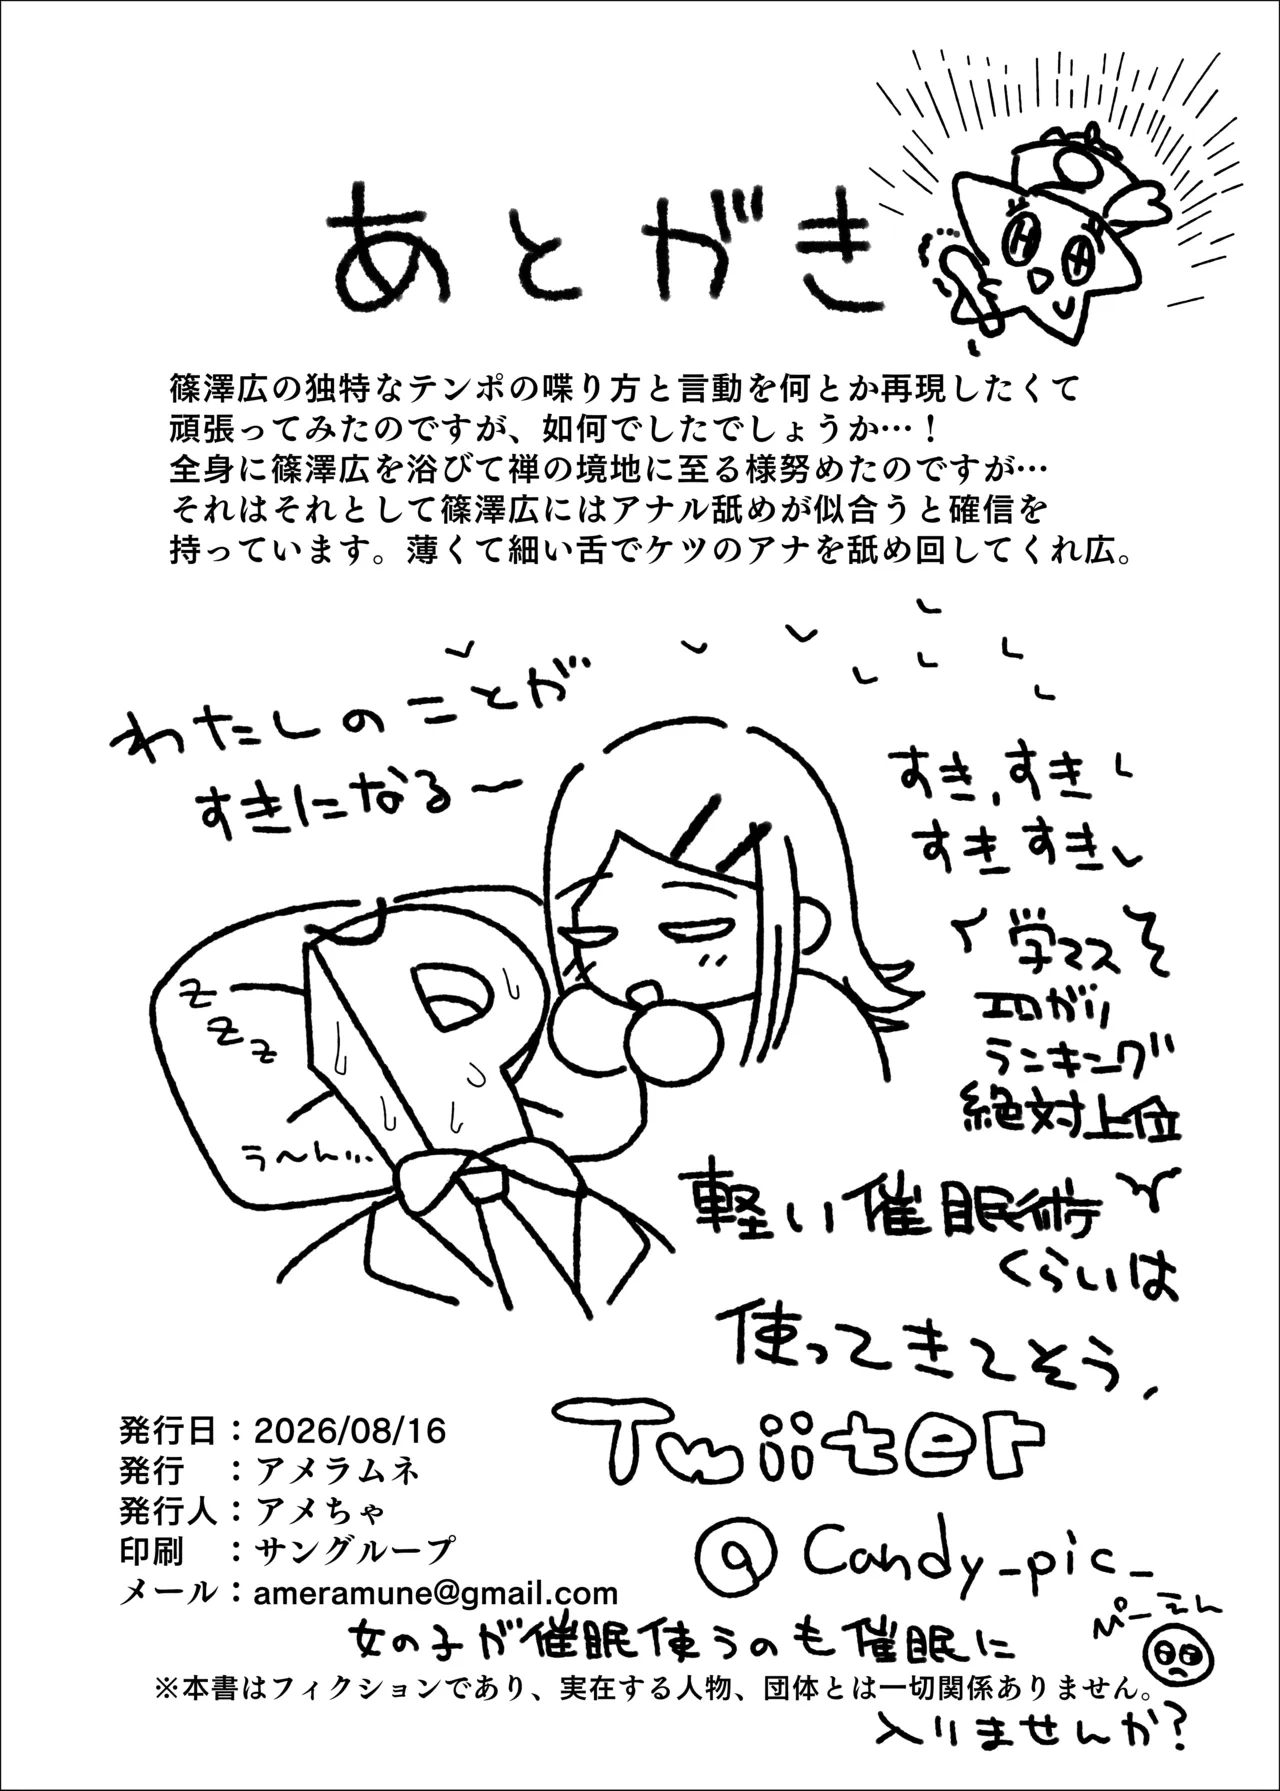 あとがき
篠澤広の独特なテンポの喋り方と言動を何とか再現したくて
頑張ってみたのですが、如何でしたでしょうか…！
全身に篠澤広を浴びて禅の境地に至る様努めたのですが…
それはそれとして篠澤広にはアナル舐めが似合うと確信を
持っています。薄くて細い舌でケツのアナを舐め回してくれ広。
わたしのことが
すきになる～
すき、すき
すきすき
学マス
エロガリ
ランキング
絶対上位
zzz
う～ん…
P
軽い催眠術
くらいは
使ってきてそう、
発行日：2026/08/16
発行　：アメラムネ
発行人：アメちゃ
印刷　：サングループ
メール：ameramune@gmail.com
Twiiter
@Candy_pic_
ぴーえん
女の子が催眠使うのも催眠に
※本書はフィクションであり、実在する人物、団体とは一切関係ありません。
入りませんか？